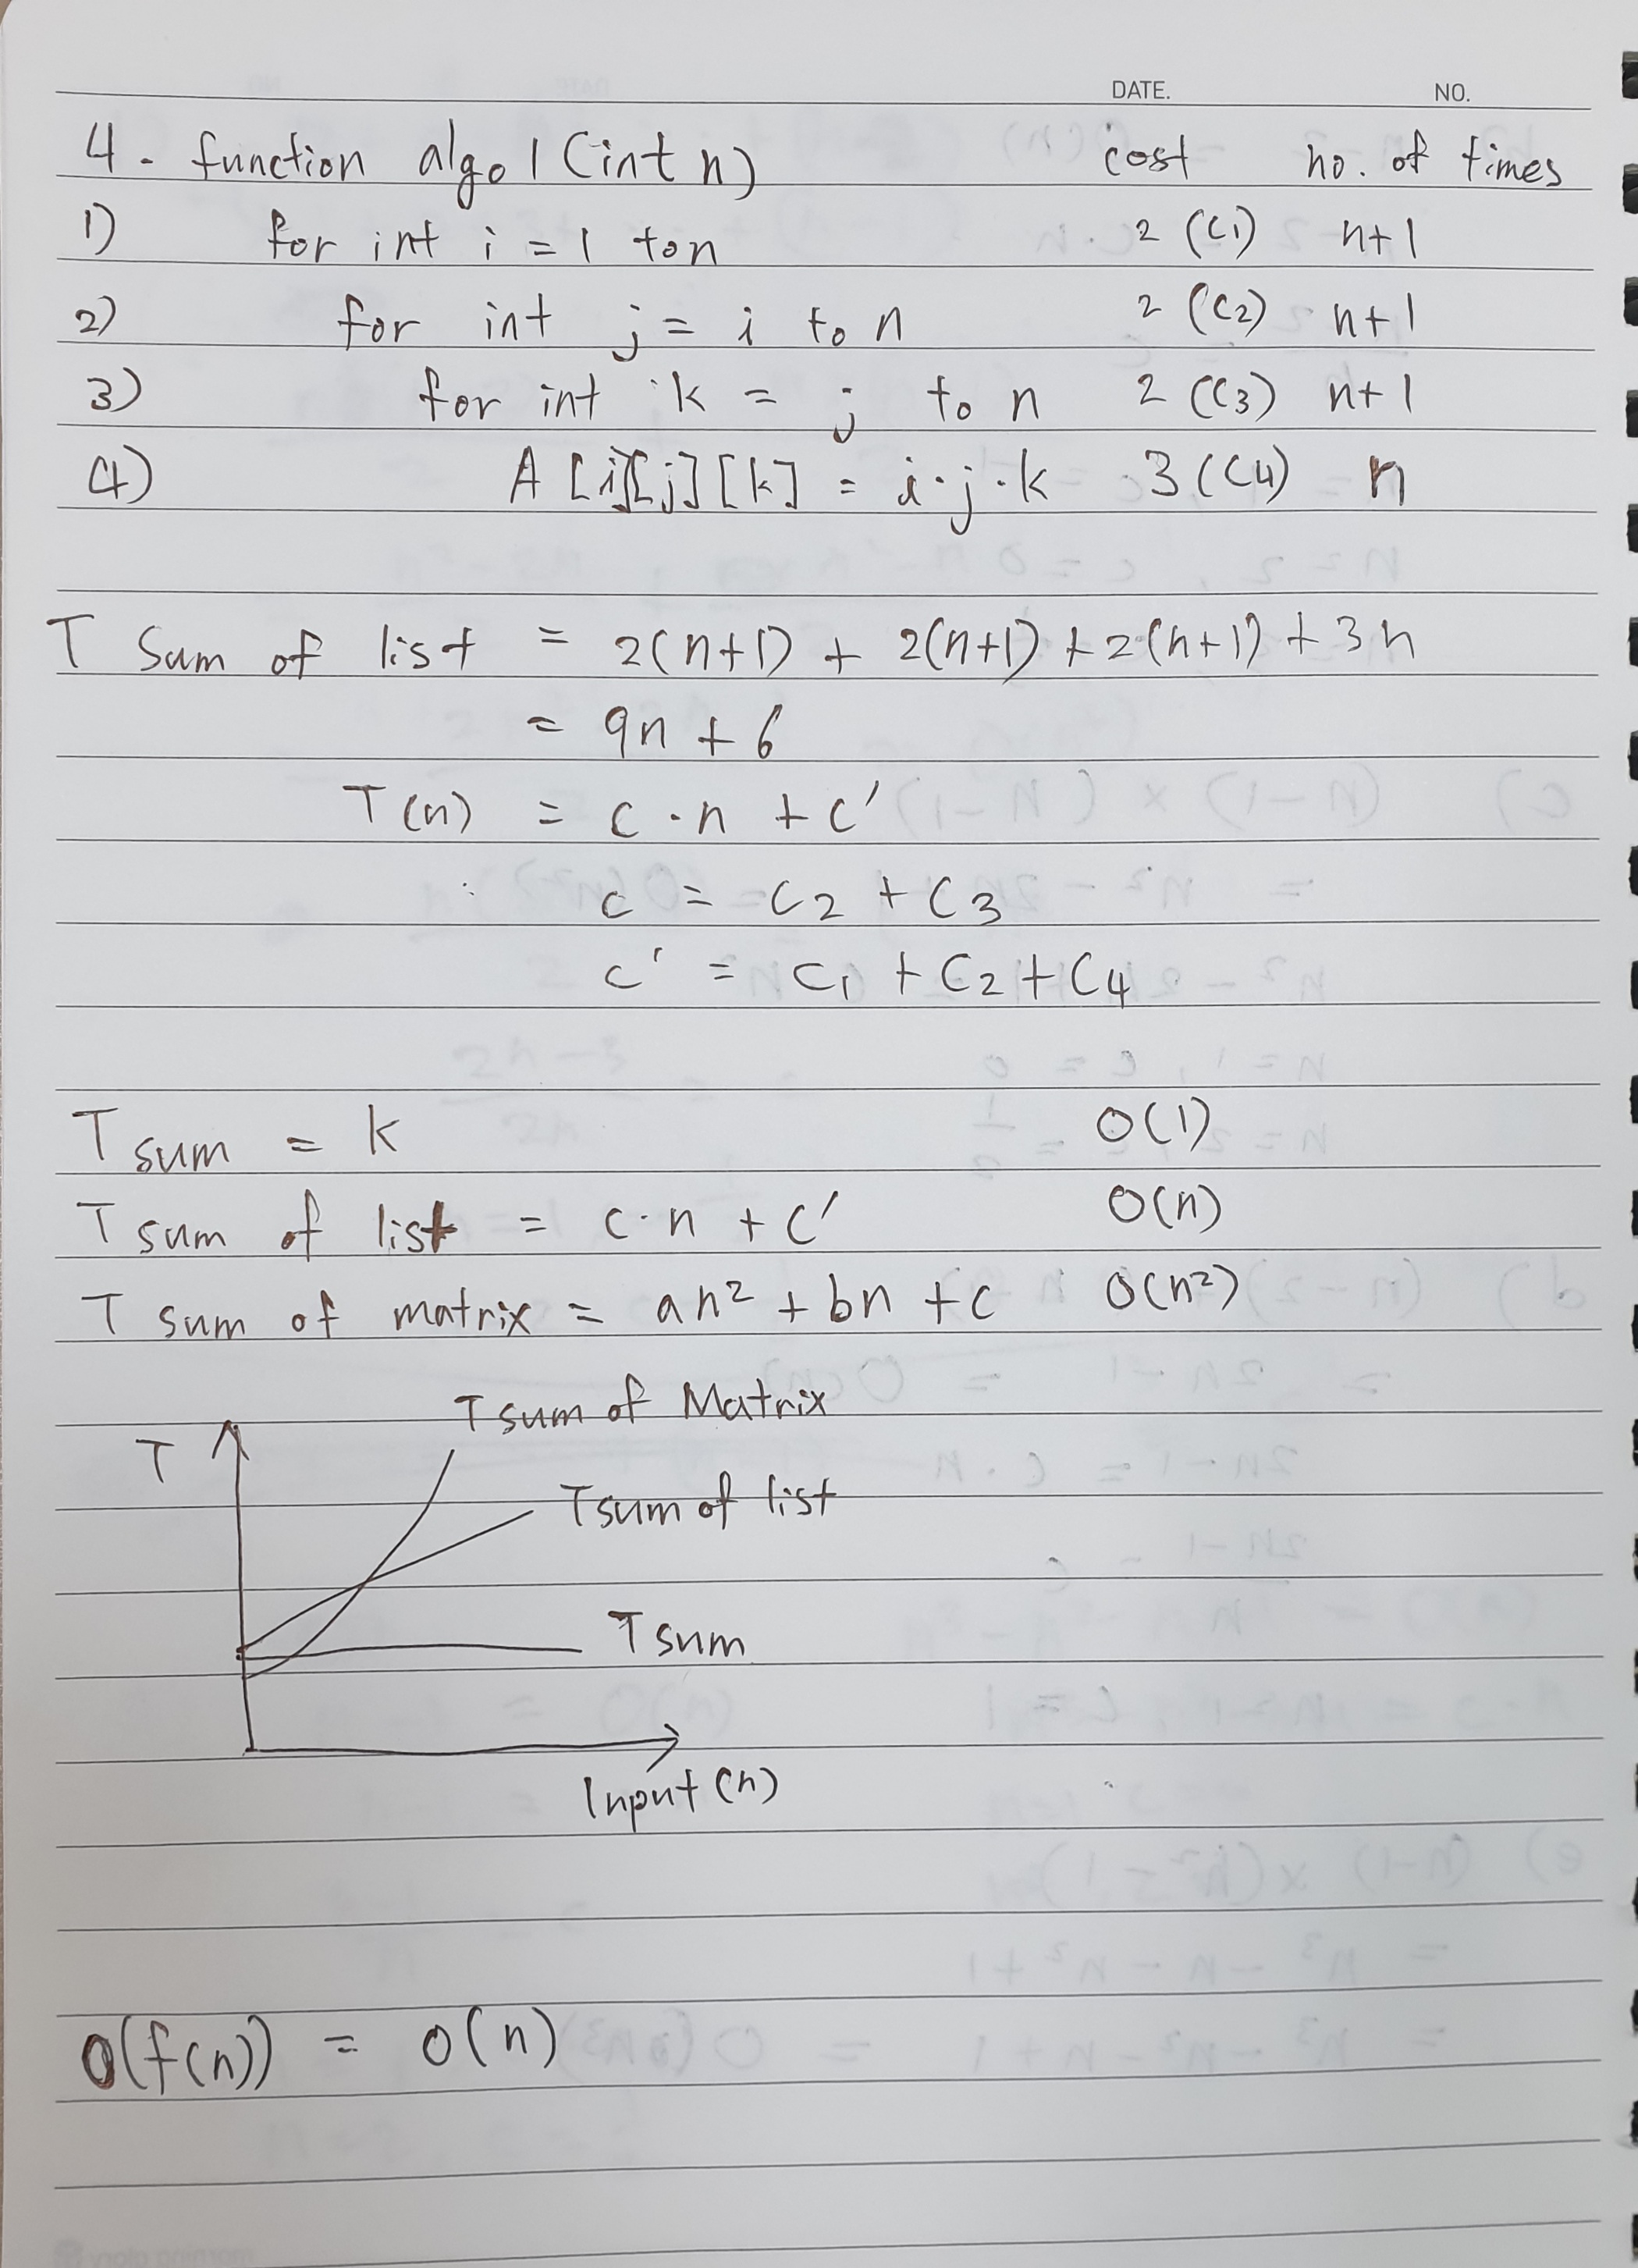 DATE. NO.
4. function algo1 (int n) cost no. of times
1) for int i = 1 to n 2 (C1) n+1
2) for int j = i to n 2 (C2) n+1
3) for int k = j to n 2 (C3) n+1
4) A [i][j][k] = i·j·k 3 (C4) n
T sum of list = 2(n+1) + 2(n+1) + 2(n+1) + 3n
= 9n + 6
T(n) = c·n + c'
c = C2 + C3
c' = C1 + C2 + C4
T sum = k O(1)
T sum of list = c·n + c' O(n)
T sum of matrix = an² + bn + c O(n²)
T sum of Matrix
T
T sum of list
T sum
Input (n)
O(f(n)) = O(n)